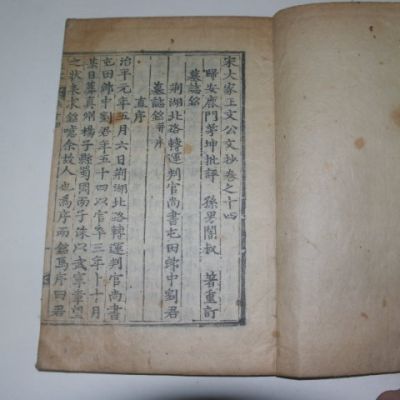 宋大家王文公文抄卷之十四
歸安鹿門茅坤批評 孫男闇叔 著重訂
墓誌銘
荊湖北路轉運判官尚書屯田郎中劉君
墓誌銘并序
直序
治平元年五月六日荊湖北路轉運判官尚書
屯田郎中劉君年五十四以官卒三年卜十月
某日葬真州楊子縣蜀岡而子洙以武寧章望
之狀來求銘噫余故人也爲序而銘焉序曰君